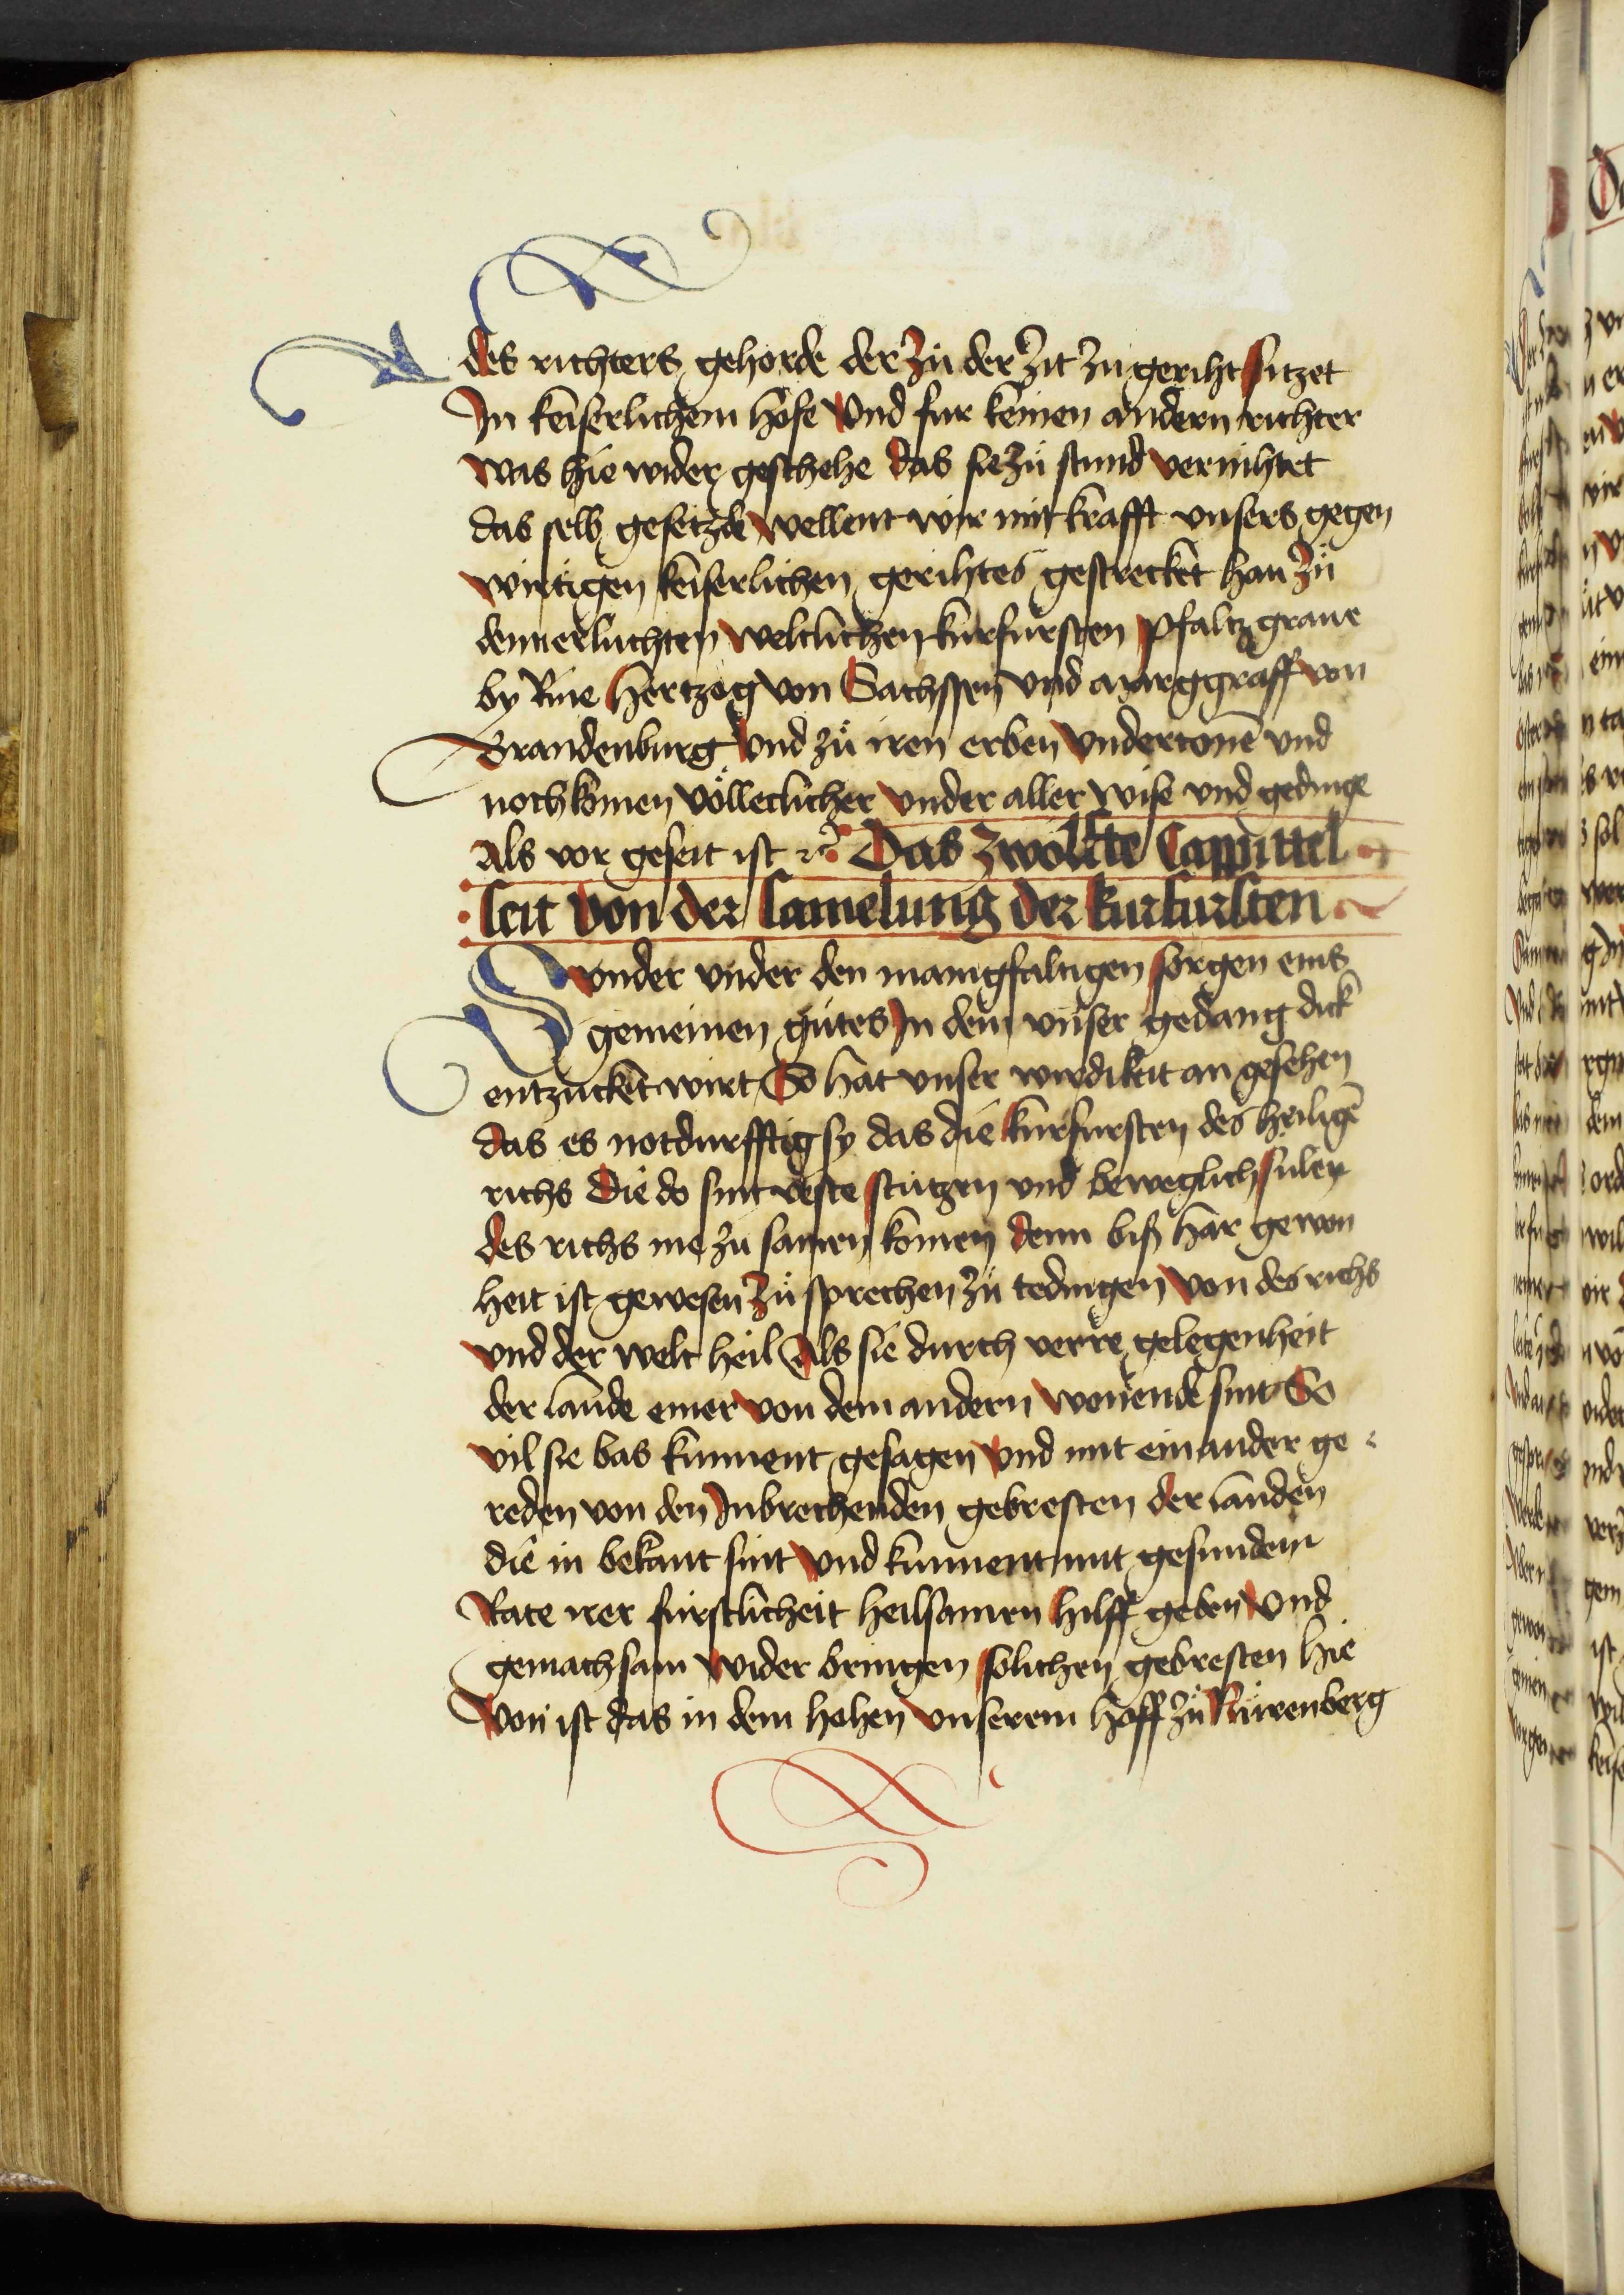 des richters gehorde der zů der zit zu geriht sitzet
In keiserlichem hofe Vnd fur keinen andern richter
was hie wider geschehe das sie zů stund vernihtet
das selb gesetzde wellent wir mit krafft vnsers gegen
wirtigen keiserlichen gerihtes gestrecket han zů
den erluchten weltlichen kurfursten pfaltzgraue
by Rine Hertzog von Sachssen vnd marggraff von
Brandenburg Vnd zů iren erben Vndertonē vnd
nochkomen völleclicher vnder aller wise vnd gedinge
Als vor geseit ist ꝛc̃ Das zwölfte Cappittel
seit von der samelung der kurfursten
Svnder vnder den manigfaltigen sorgen eins
gemeinen gůtes In dem vnser gedang dick
entzucket wirt So hat vnser wirdikeit an gesehen
das es notdurfftig sy das die kurfursten des heiligē
richs Die do sint veste stützen vnd beweglich sulen
des richs me zu samen komen denn biß har gewon
heit ist gewesen Zů sprechen zů tedingen von des richs
vnd der welt heil Als sie durch verre gelegenheit
der lande einer von dem andern wonende sint So
vil sie bas kunnent gesagen vnd mit einander ge
reden von den Inbrechenden gebresten der landen
die in bekant sint vnd kunnent mit gesundem
Rate irer furstlicheit heilsamen hilff geben vnd
gemachsam wider bringen solichen gebresten hie
von ist das in dem hohen vnserem hoff zů Nůrenberg